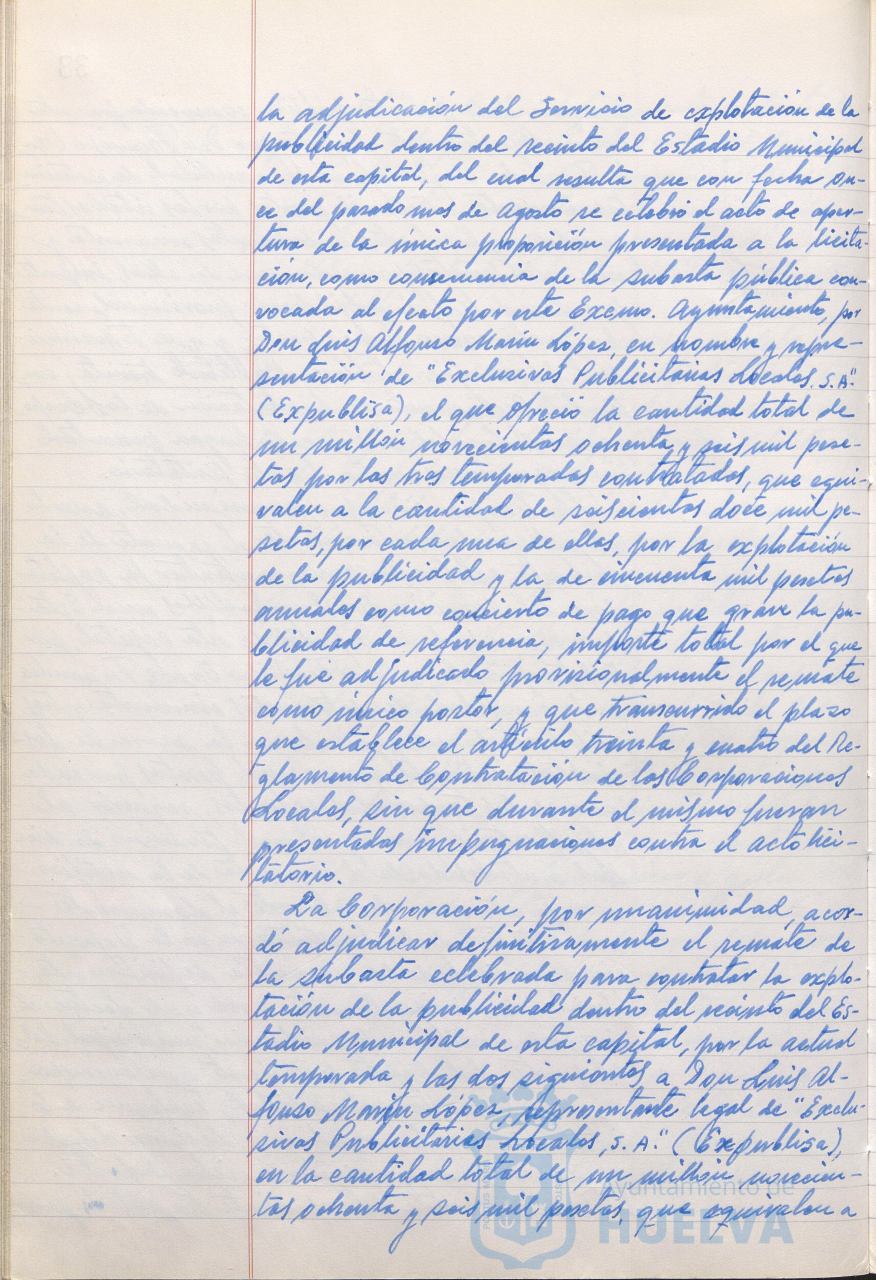 la adjudicación del Servicio de explotación de la
publicidad dentro del recinto del Estadio Municipal
de esta capital, del cual resulta que con fecha on-
ce del pasado mes de Agosto se celebró el acto de aper-
tura de la única proposición presentada a la licita-
ción, como consecuencia de la subasta pública con-
vocada al efecto por este Excmo. Ayuntamiento, por
Don Luis Alfonso Marín López, en nombre y repre-
sentación de "Exclusivas Publicitarias Locales, S.A."
(Expublisa), el que ofreció la cantidad total de
un millón novecientas ochenta y seis mil pese-
tas por las tres temporadas contratadas, que equi-
valen a la cantidad de seiscientas doce mil pe-
setas, por cada una de ellas, por la explotación
de la publicidad y la de cincuenta mil pesetas
anuales como concierto de pago que grave la pu-
blicidad de referencia, importe total por el que
le fué adjudicado provisionalmente el remate
como único postor, y que transcurrido el plazo
que establece el artículo treinta y cuatro del Re-
glamento de Contratación de las Corporaciones
Locales, sin que durante el mismo fueran
presentadas impugnaciones contra el acto lici-
tatorio.
La Corporación, por unanimidad, acor-
dó adjudicar definitivamente el remate de
la subasta celebrada para contratar la explo-
tación de la publicidad dentro del recinto del Es-
tadio Municipal de esta capital, por la actual
temporada y las dos siguientes, a Don Luis Al-
fonso Marín López, representante legal de "Exclu-
sivas Publicitarias Locales, S.A." (Expublisa),
en la cantidad total de un millón novecien-
tas ochenta y seis mil pesetas, que equivalen a
Ayuntamiento de
HUELVA